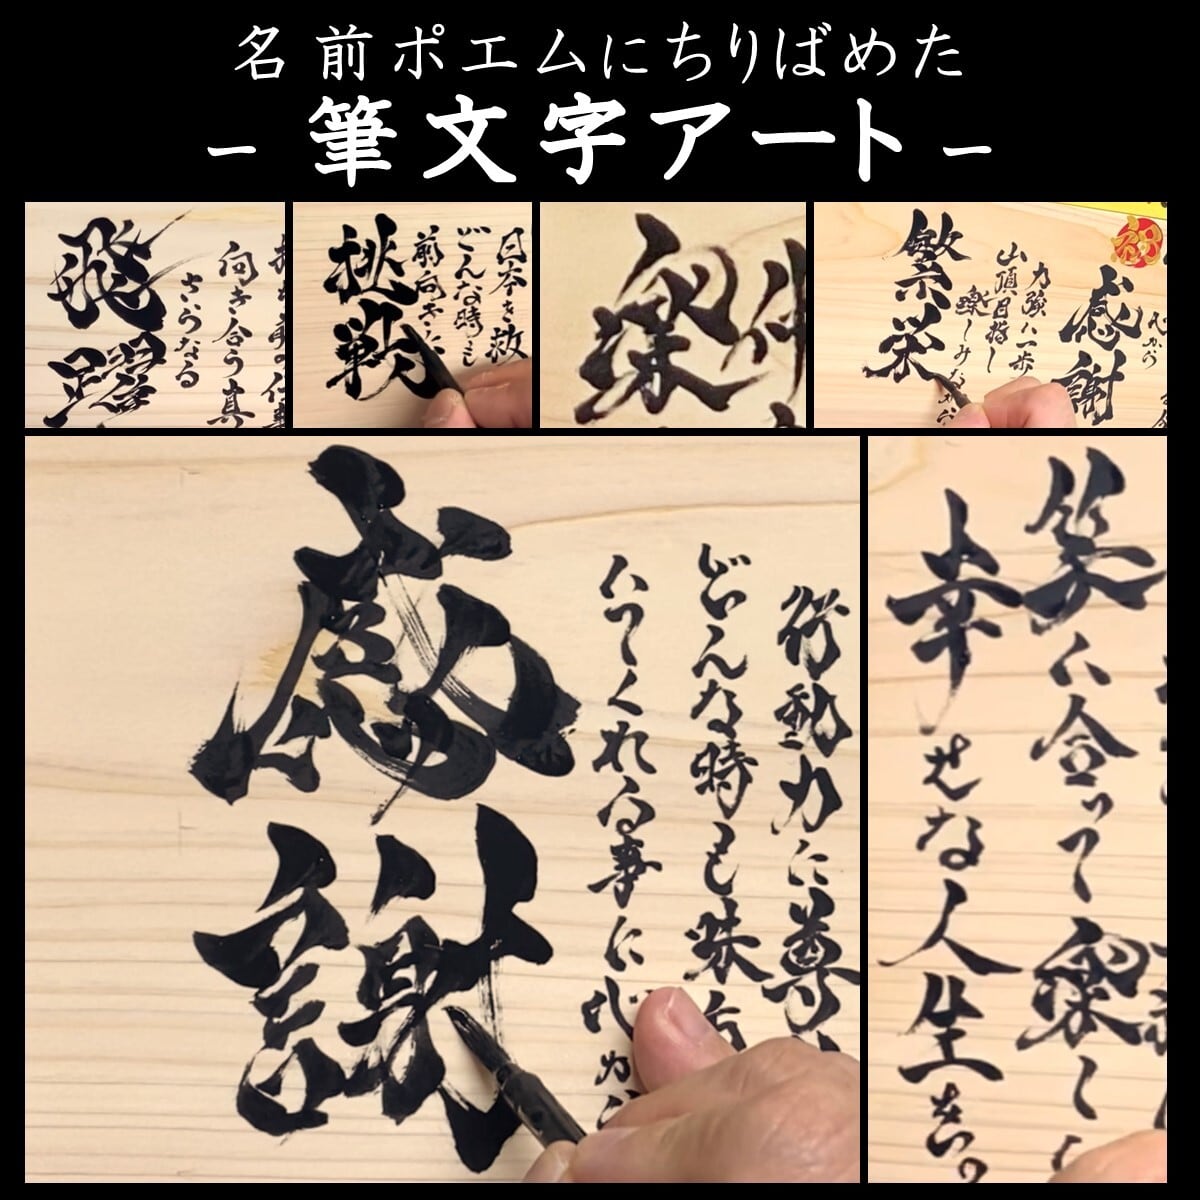 名前ポエムにちりばめた
－筆文字アート－
向き合う真
さらなる
飛躍
日本を救
どんな時も
前向きに
挑戦
楽
仲
祝
心から
感謝
力強い一歩
山頂目指し
楽しみながら
繁栄
行動力に尊
どんな時も味方
いてくれる事に
心から
感謝
笑い合って楽し
幸せな人生を。